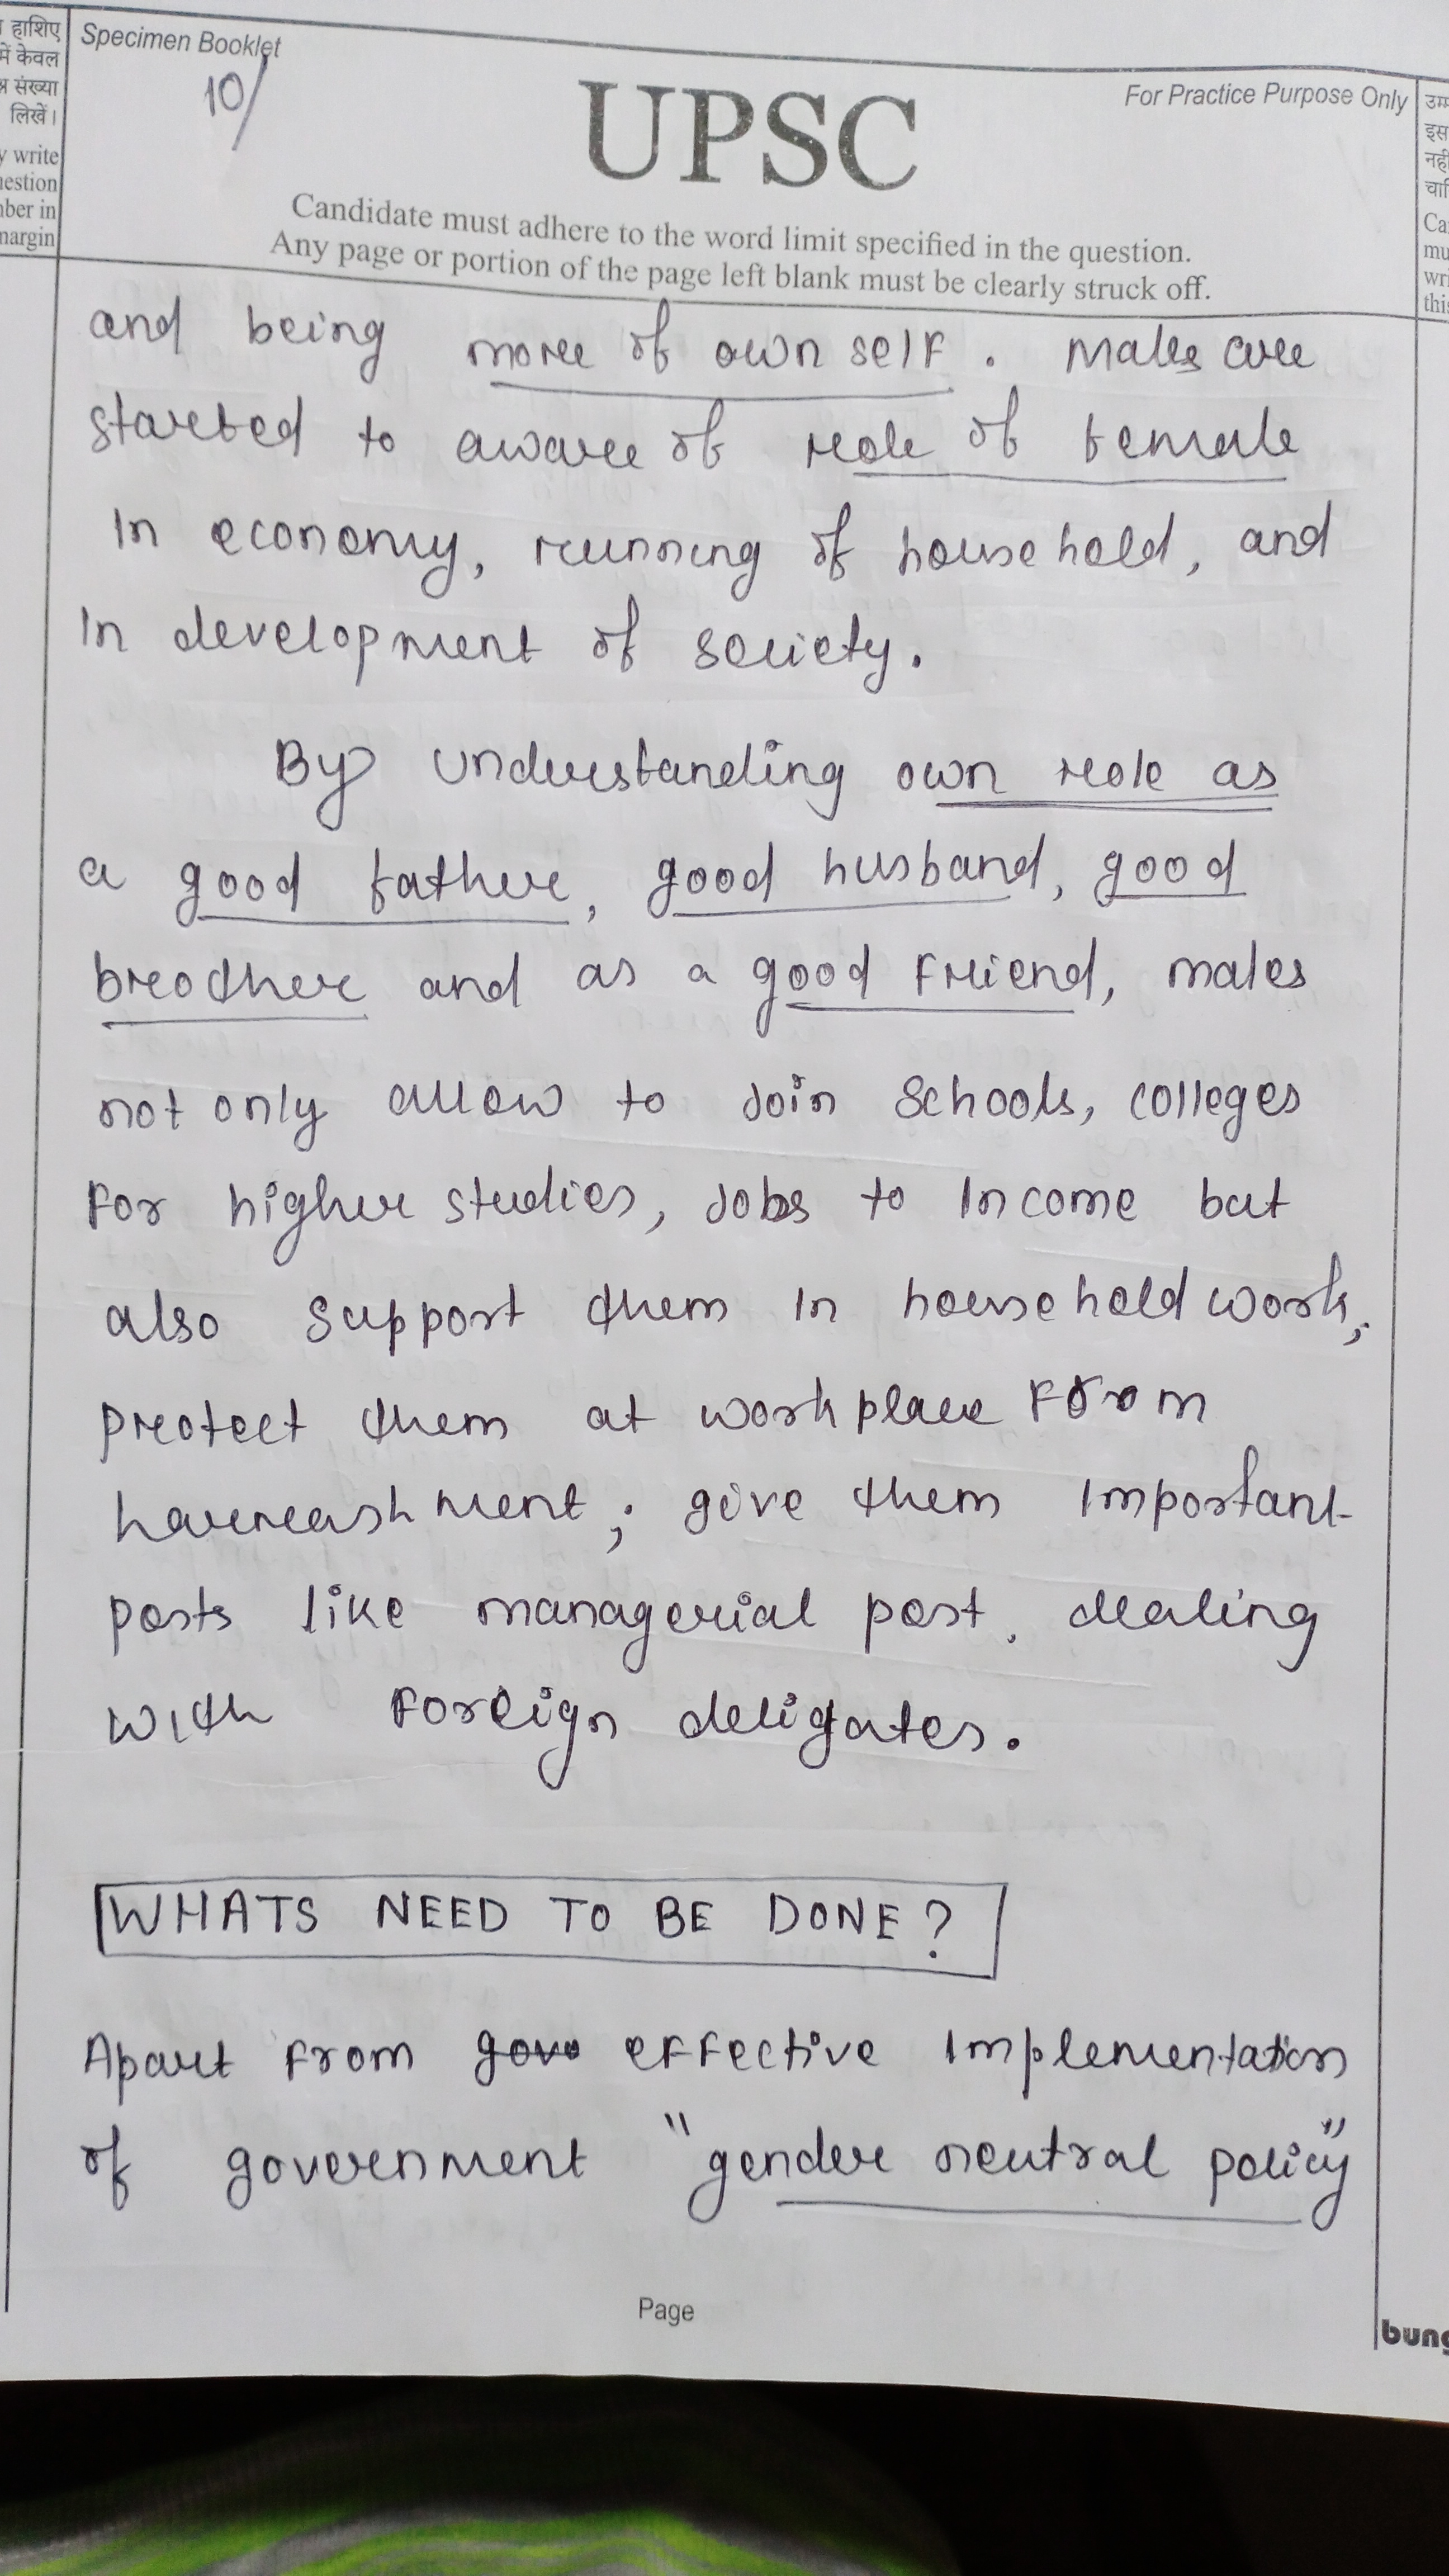 हाशिए
में केवल
संख्या
लिखें।
write
estion
ber in
margin
Specimen Booklet
10/
UPSC
For Practice Purpose Only
Candidate must adhere to the word limit specified in the question.
Any page or portion of the page left blank must be clearly struck off.
उम्म
इस
नहीं
चाि
Ca
mu
wri
this
and being more of own self. Males are
started to aware of role of female
In economy, running of household, and
In development of society.
By understanding own role as
a good father, good husband, good
brother and as a good friend, males
not only allow to Join Schools, colleges
For higher studies, Jobs to Income but
also support them in household work,
protect them at workplace From
harrrashment; give them Important
posts like managerial post, dealing
with Foreign deligates.
WHATS NEED TO BE DONE?
Apart From gove effective Implementation
of government "gender neutral policy"
Page
bung